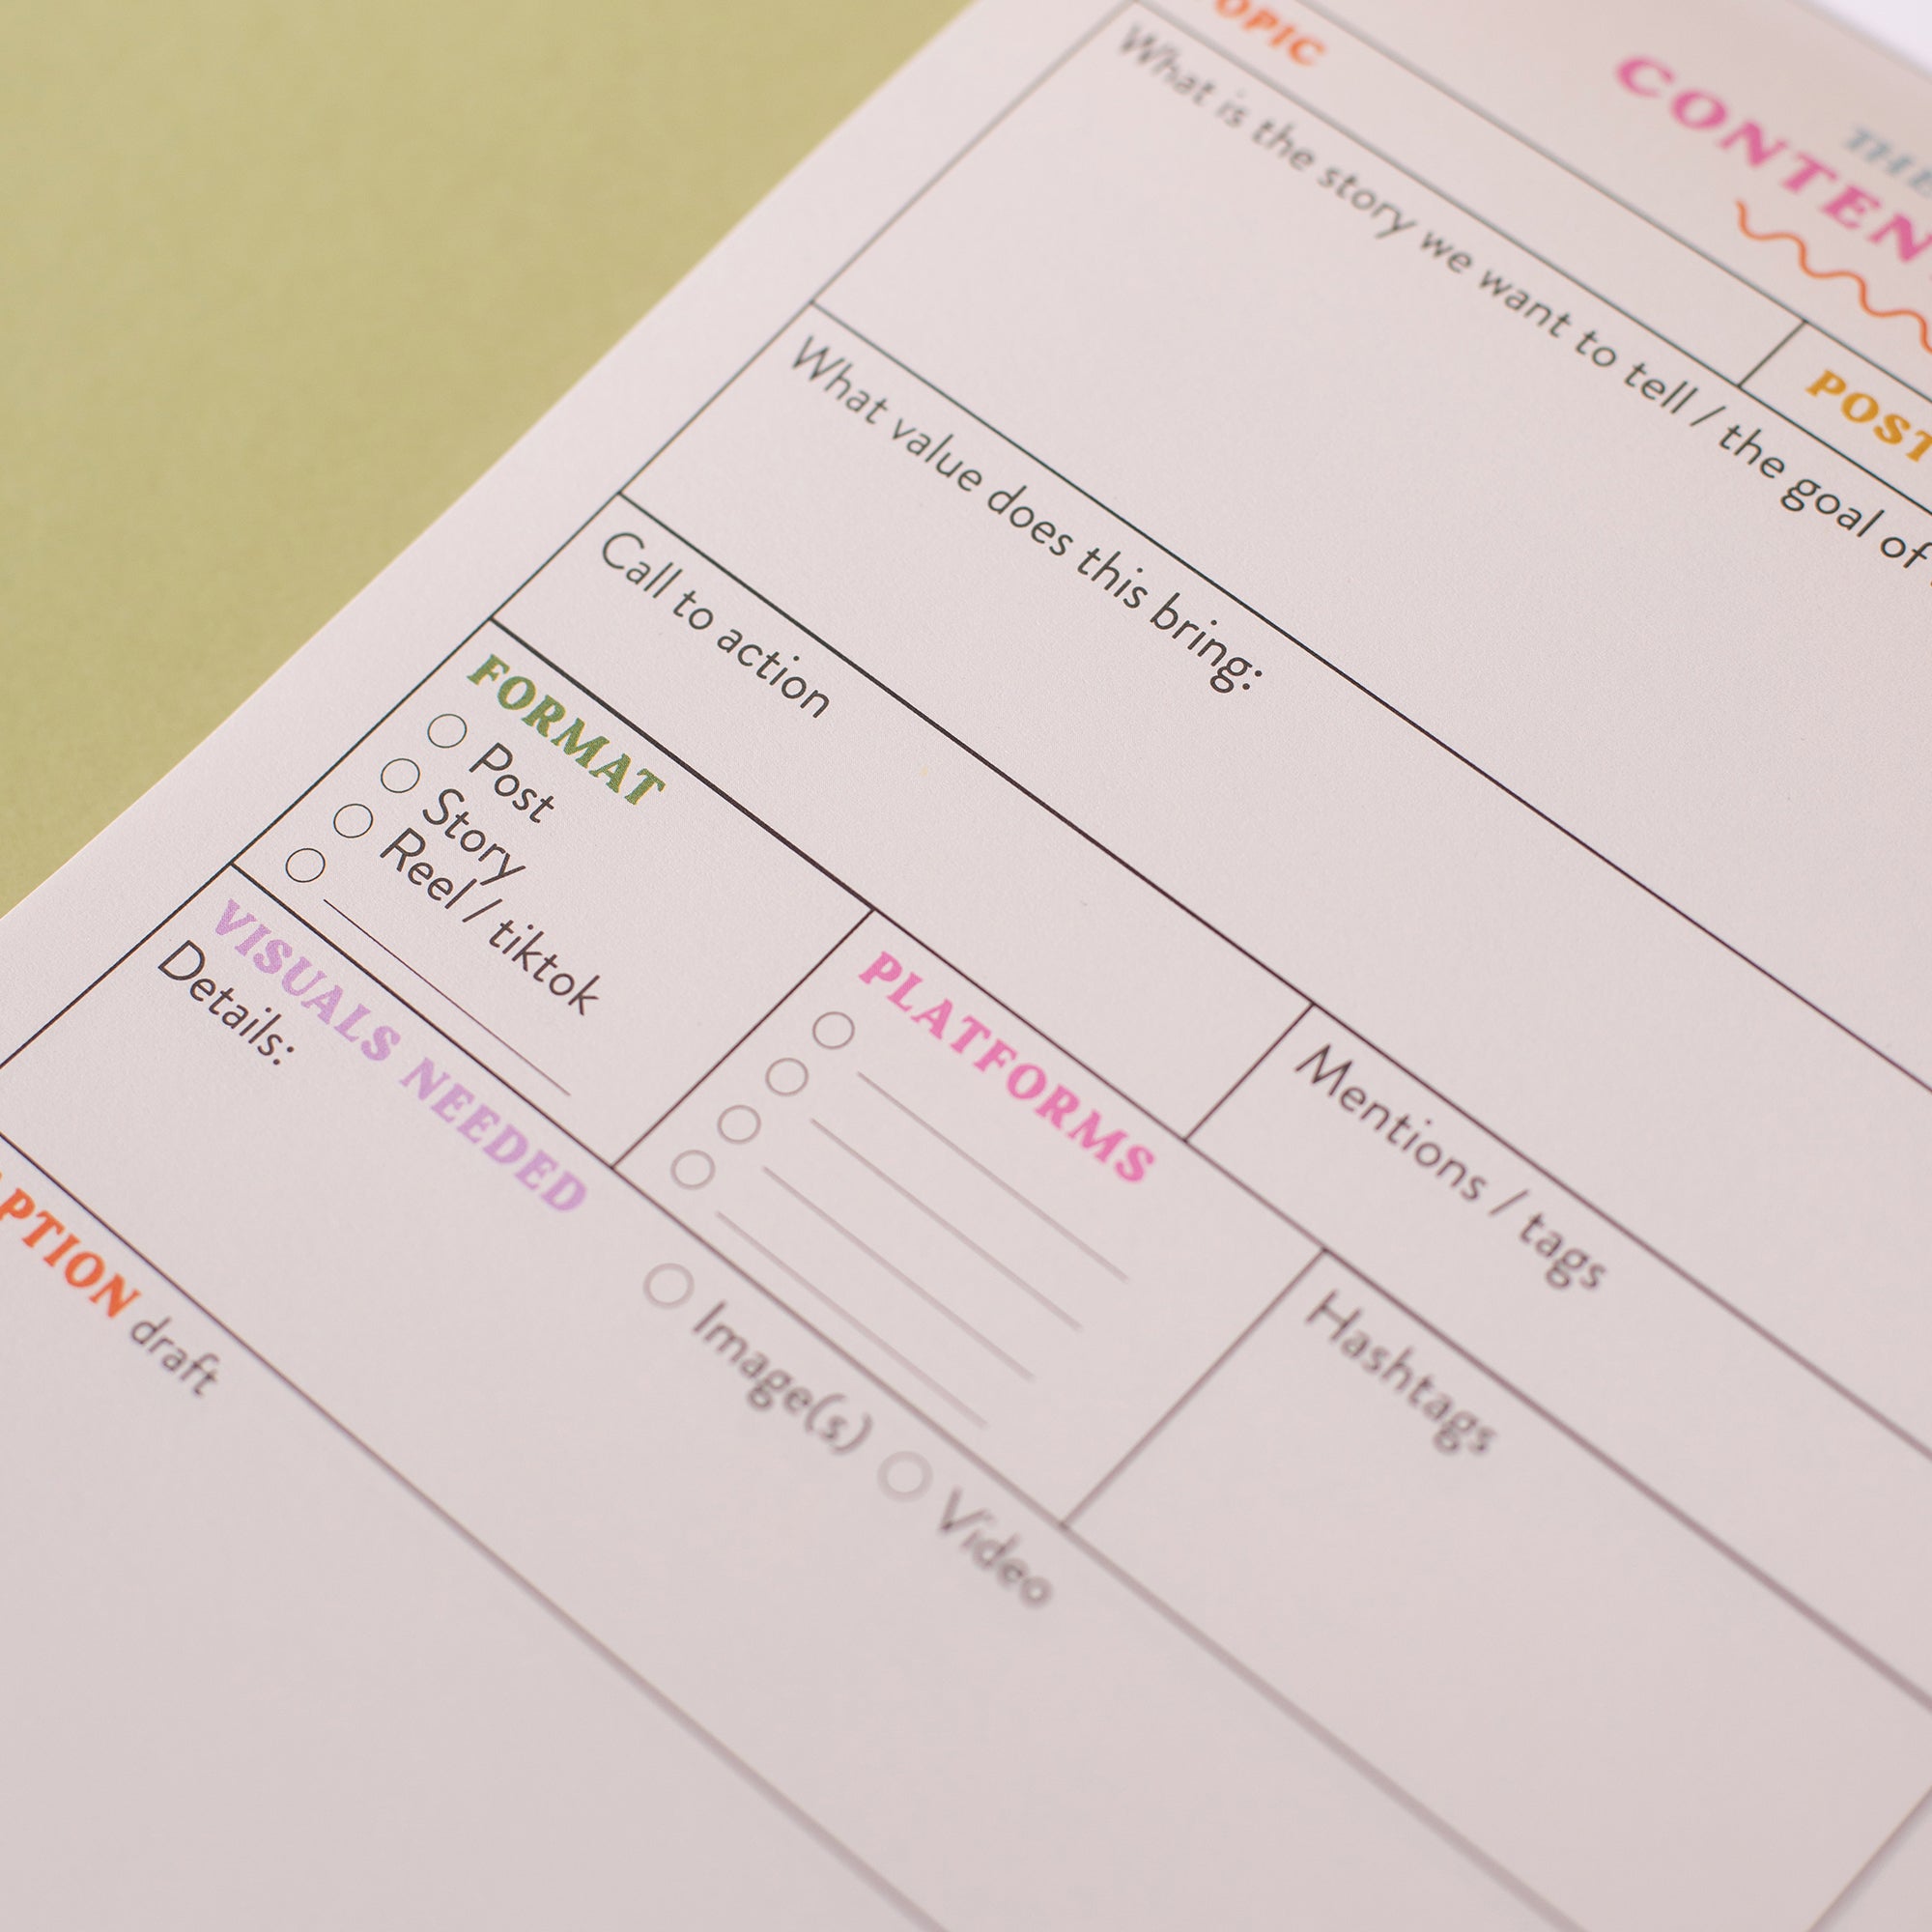 THE
CONTEN
TOPIC
POST
What is the story we want to tell / the goal of
What value does this bring:
Call to action
Mentions / tags
FORMAT
Post
Story
Reel / tiktok
PLATFORMS
Hashtags
VISUALS NEEDED
Image(s)
Video
Details:
APTION draft